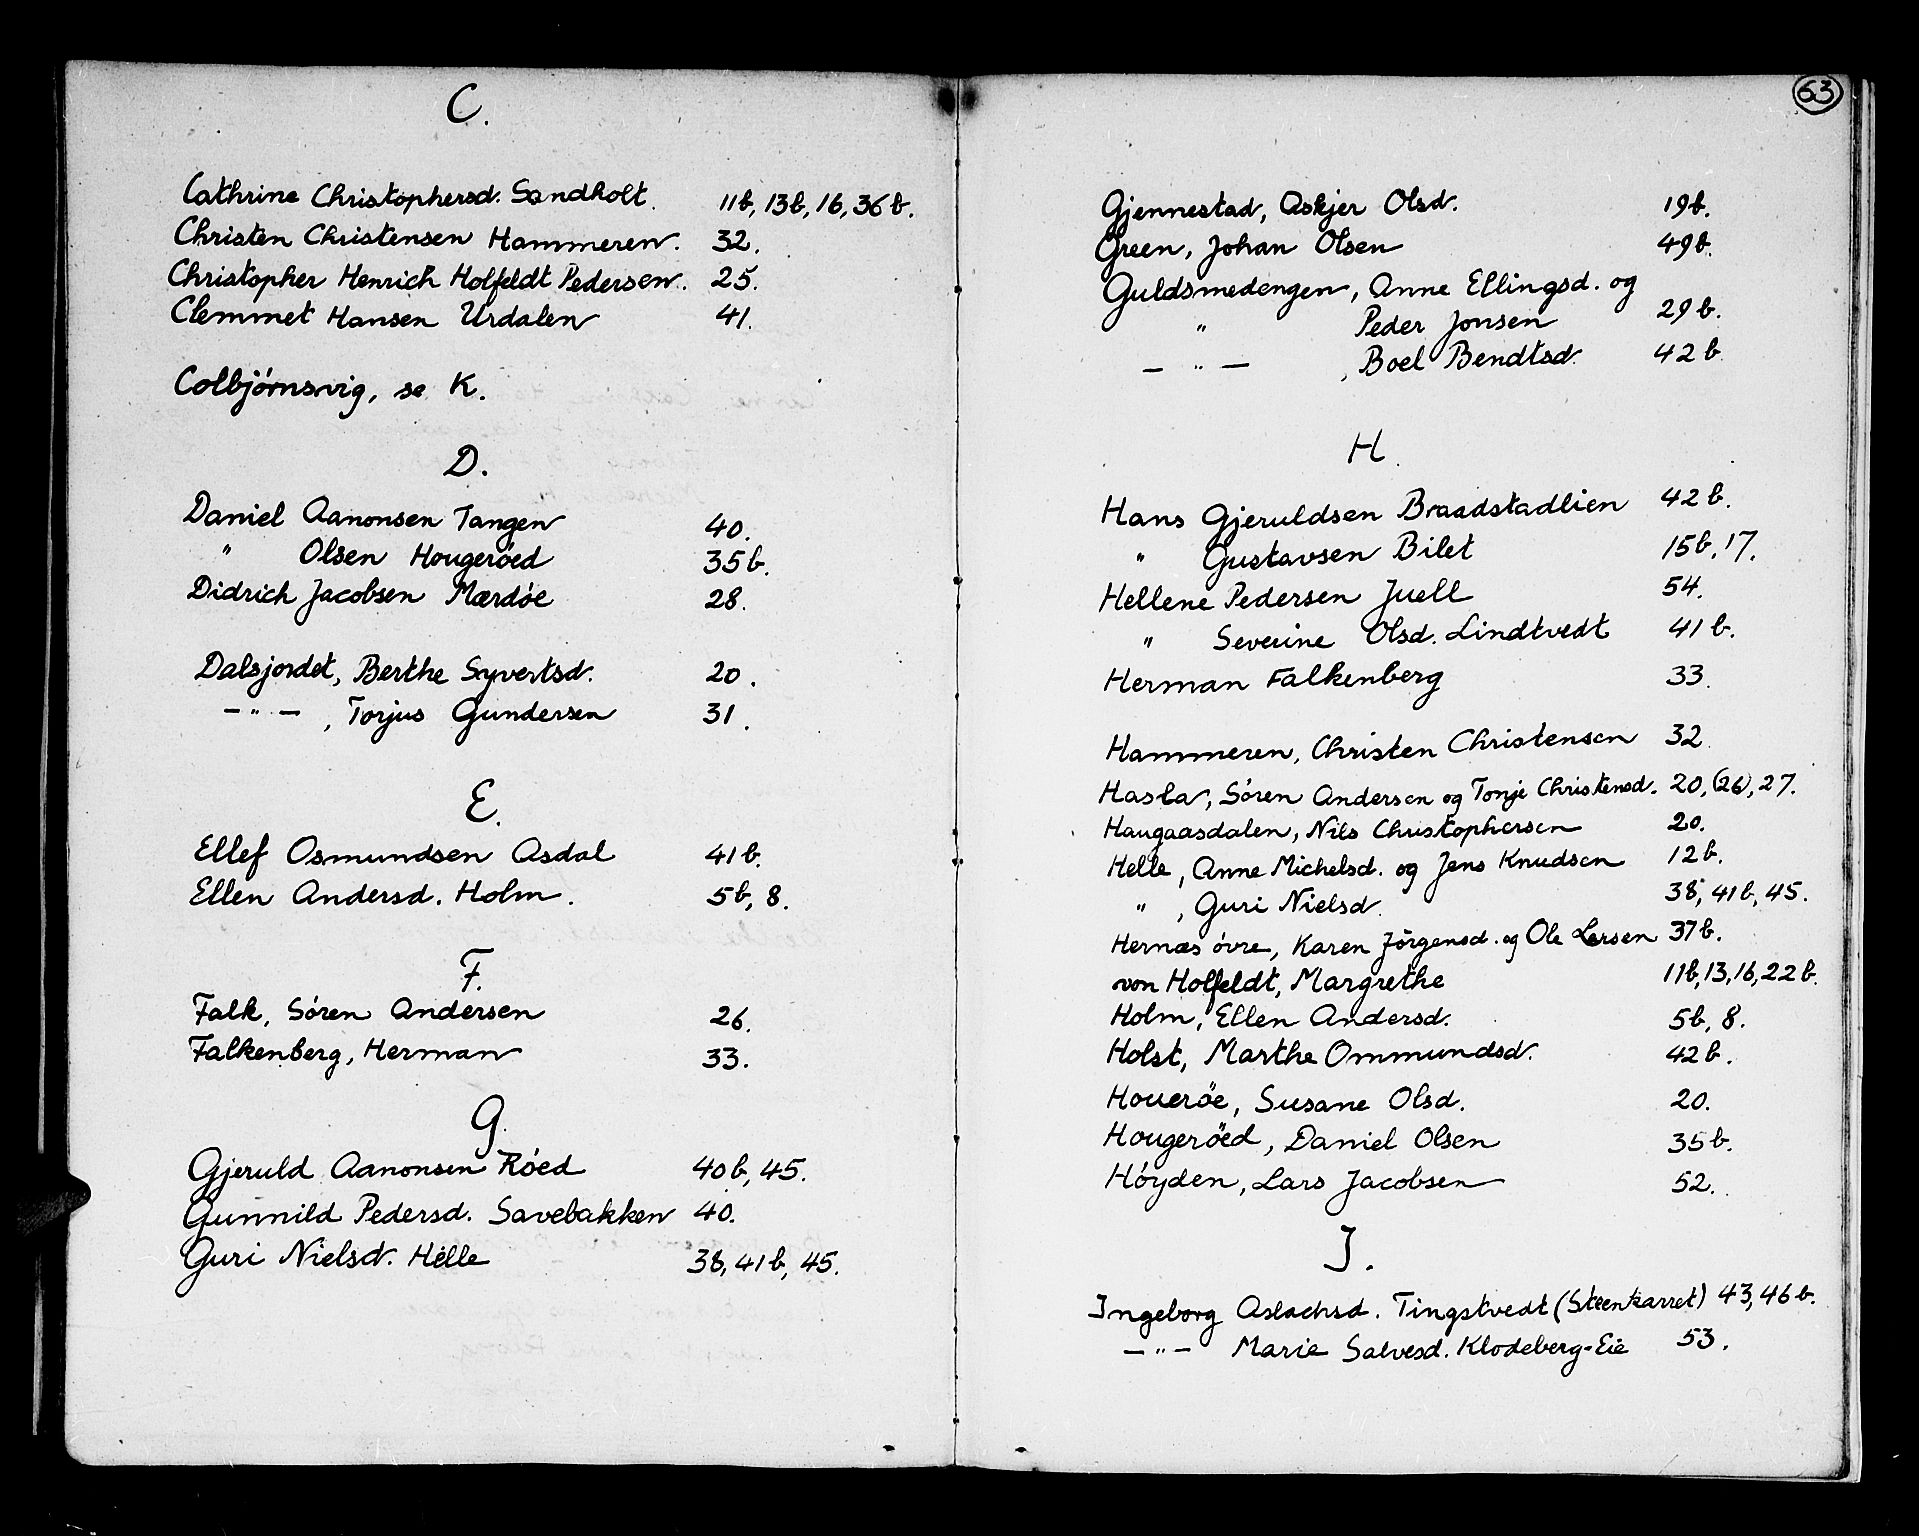 C.
Cathrine Christophersd. Sandholt. 11b, 13b, 16, 36b.
Christen Christensen Hammeren. 32.
Christopher Henrich Holfeldt Pedersen. 25.
Clemmet Hansen Urdalen 41.
Colbjörnsvig, se K.
D.
Daniel Aanonsen Tangen 40.
" Olsen Hougeröed 35b.
Didrich Jacobsen Mærdöe 28.
Dalsjordet, Berthe Syvertsd. 20.
— " — , Torjus Gundersen 31.
E.
Ellef Osmundsen Asdal 41b.
Ellen Andersd. Holm. 5b, 8.
F.
Falk, Sören Andersen 26.
Falkenberg, Herman 33.
G.
Gjeruld Aanonsen Röed 40b, 45.
Gunnild Pedersd. Savebakken 40.
Guri Nielsd. Helle 38, 41b, 45.
63
Gjennestad, Askjer Olsd. 19b.
Green, Johan Olsen 49b.
Guldsmedengen, Anne Ellingsd. og
" Peder Jonsen 29b.
— " — , Boel Bendtsd. 42b
H.
Hans Gjeruldsen Braadstadlien 42b.
" Gustavsen Bilet 15b, 17.
Hellene Pedersen Juell 54.
" Severine Olsd. Lindtvedt 41b.
Herman Falkenberg 33.
Hammeren, Christen Christensen 32.
Hasla, Sören Andersen og Tonje Christensd. 20, (26), 27.
Haugaasdalen, Nils Christophersen 20.
Helle, Anne Michelsd. og Jens Knudsen 12b.
" , Guri Nielsd. 38, 41b, 45.
Hernæs övre, Karen Jörgensd. og Ole Larsen 37b.
von Holfeldt, Margrethe 11b, 13, 16, 22b.
Holm, Ellen Andersd. 5b, 8.
Holst, Marthe Ommundsd. 42b.
Houeröe, Susane Olsd. 20.
Hougeröed, Daniel Olsen 35b.
Höyden, Lars Jacobsen 52.
I.
Ingeborg Aslachsd. Tingstvedt (Steenkarret) 43, 46b.
— " — Marie Salvesd. Klodeberg-Eie 53.